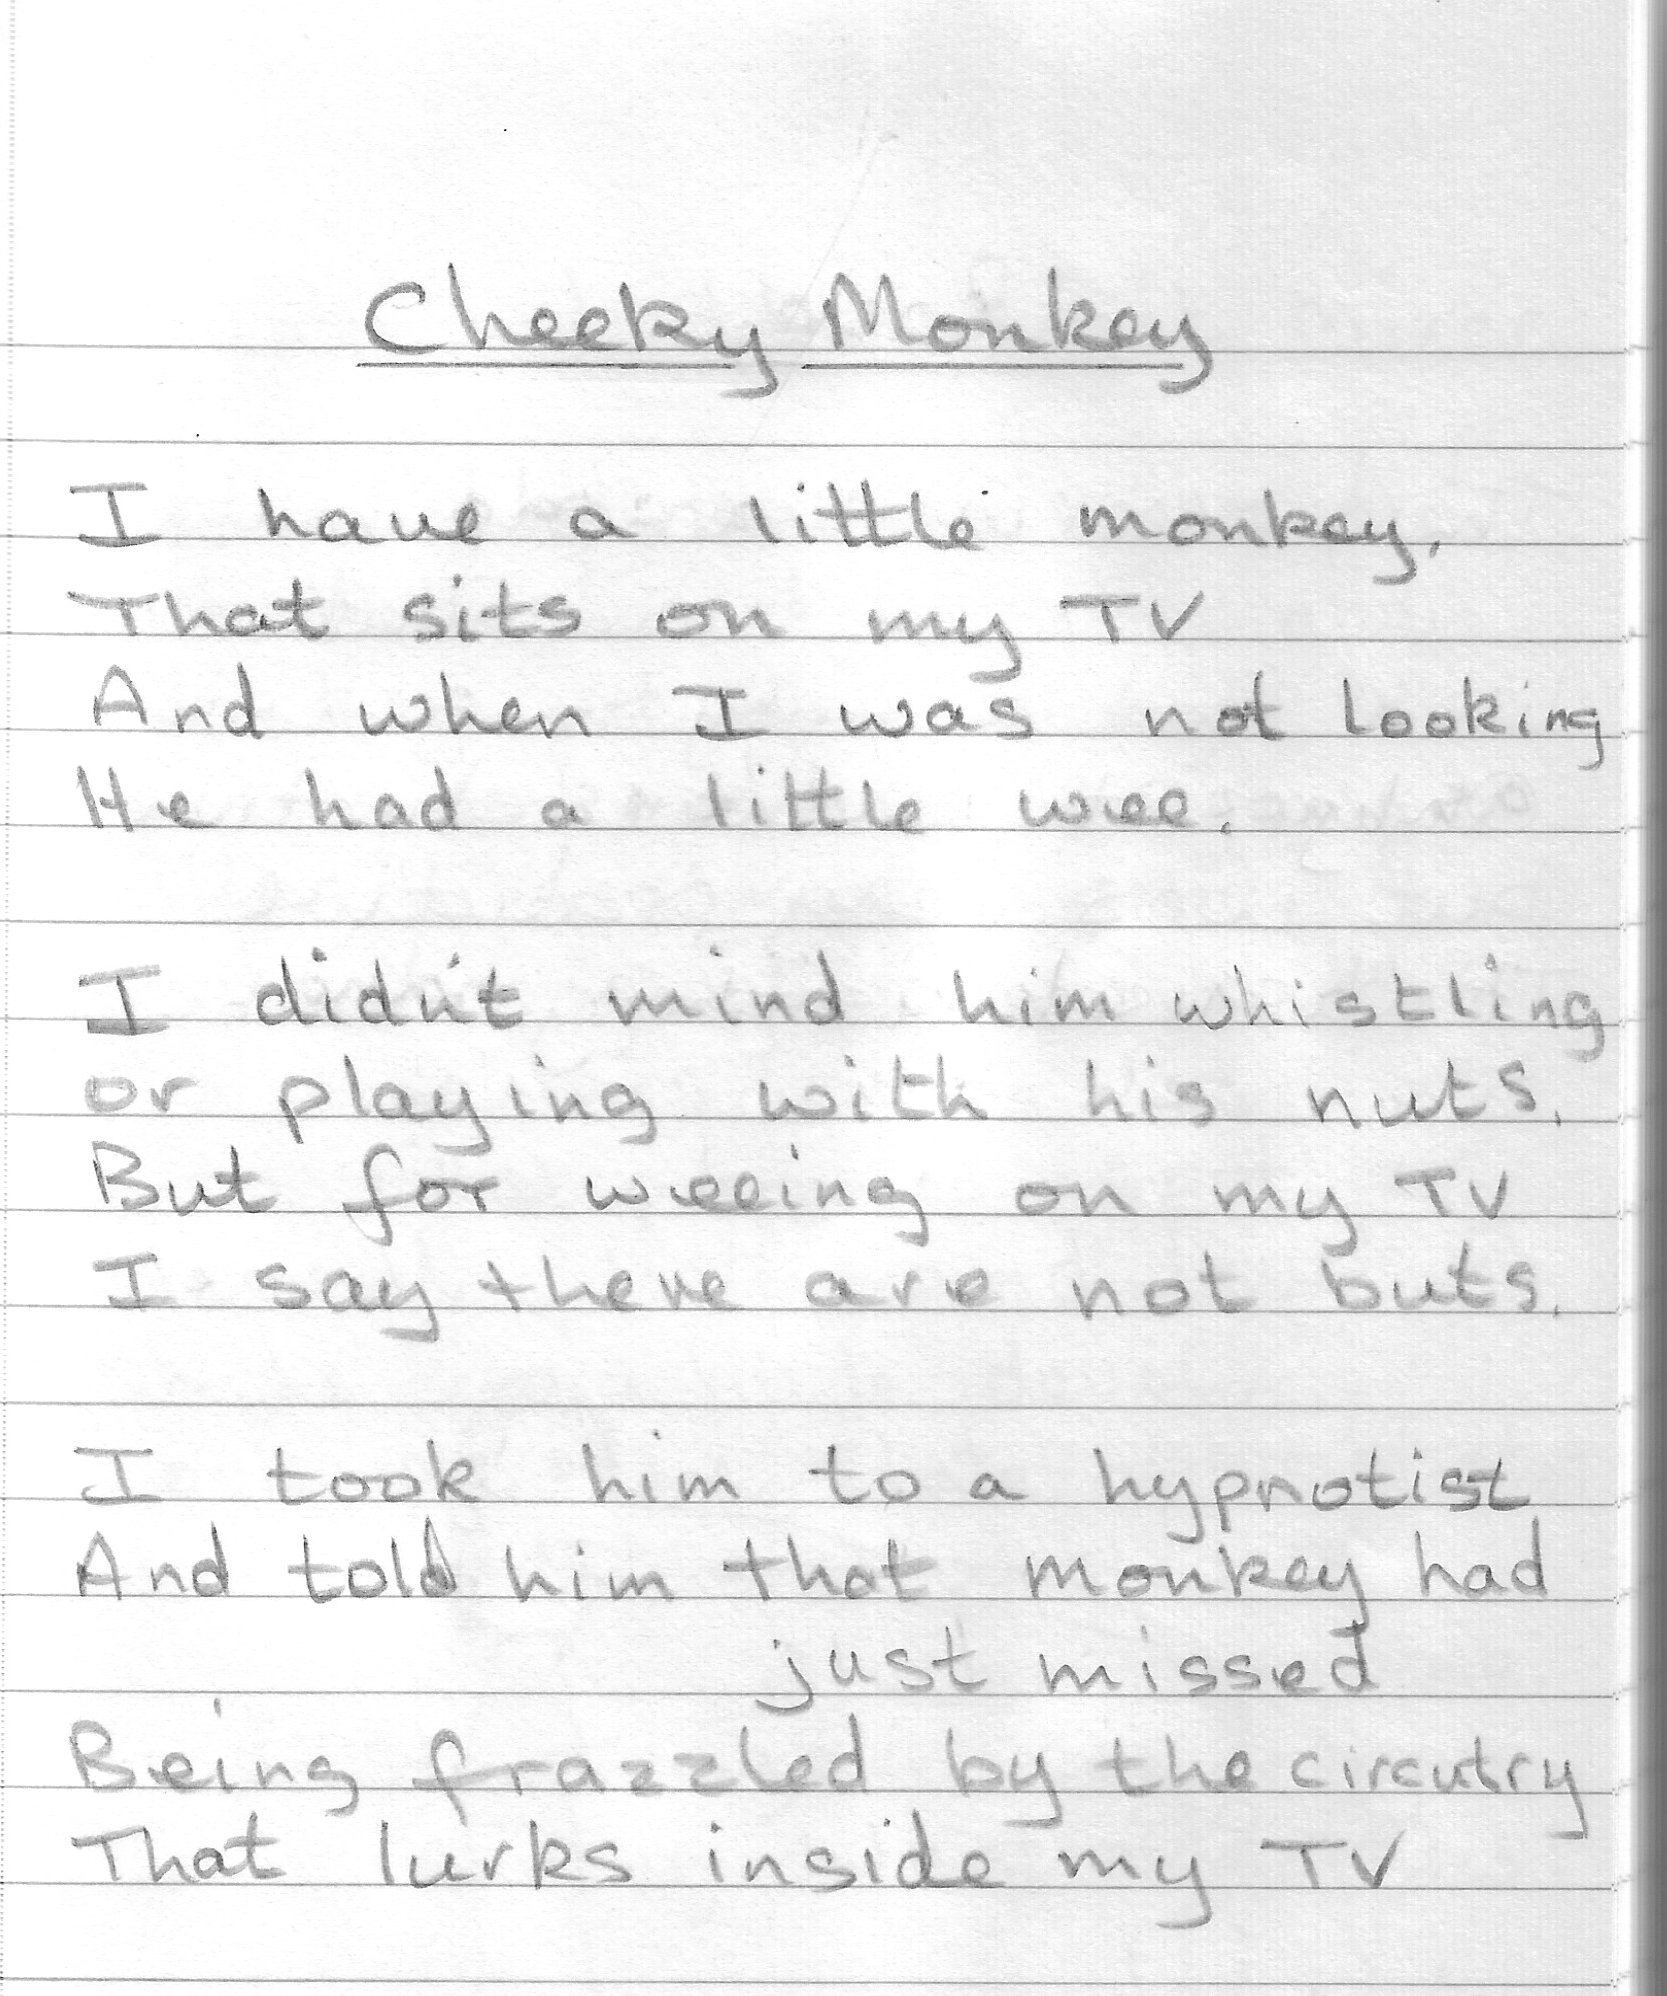 Cheeky Monkey
I have a little monkey.
That sits on my TV
And when I was not looking
He had a little wee.
I didn't mind him whistling
or playing with his nuts.
But for weeing on my TV
I say there are not buts.
I took him to a hypnotist
And told him that monkey had
just missed
Being frazzled by the circutry
That lurks inside my TV